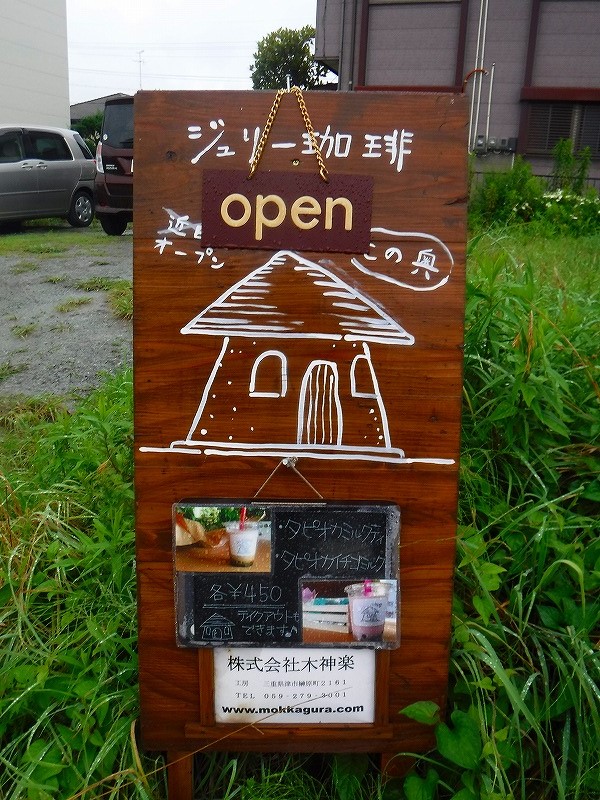 ジュリー珈琲
open
近日
オープン
この奥
・タピオカミルクティ
・タピオカイチゴミルク
各¥450
テイクアウトも
できます♪
株式会社木神楽
工房 三重県津市榊原町2161
TEL 059-279-3001
www.mokkagura.com